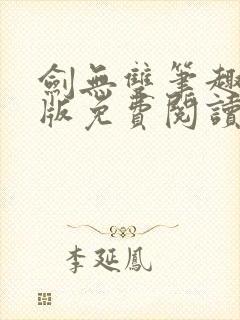 劍無雙筆趣
版免費閱讀
李延鳳